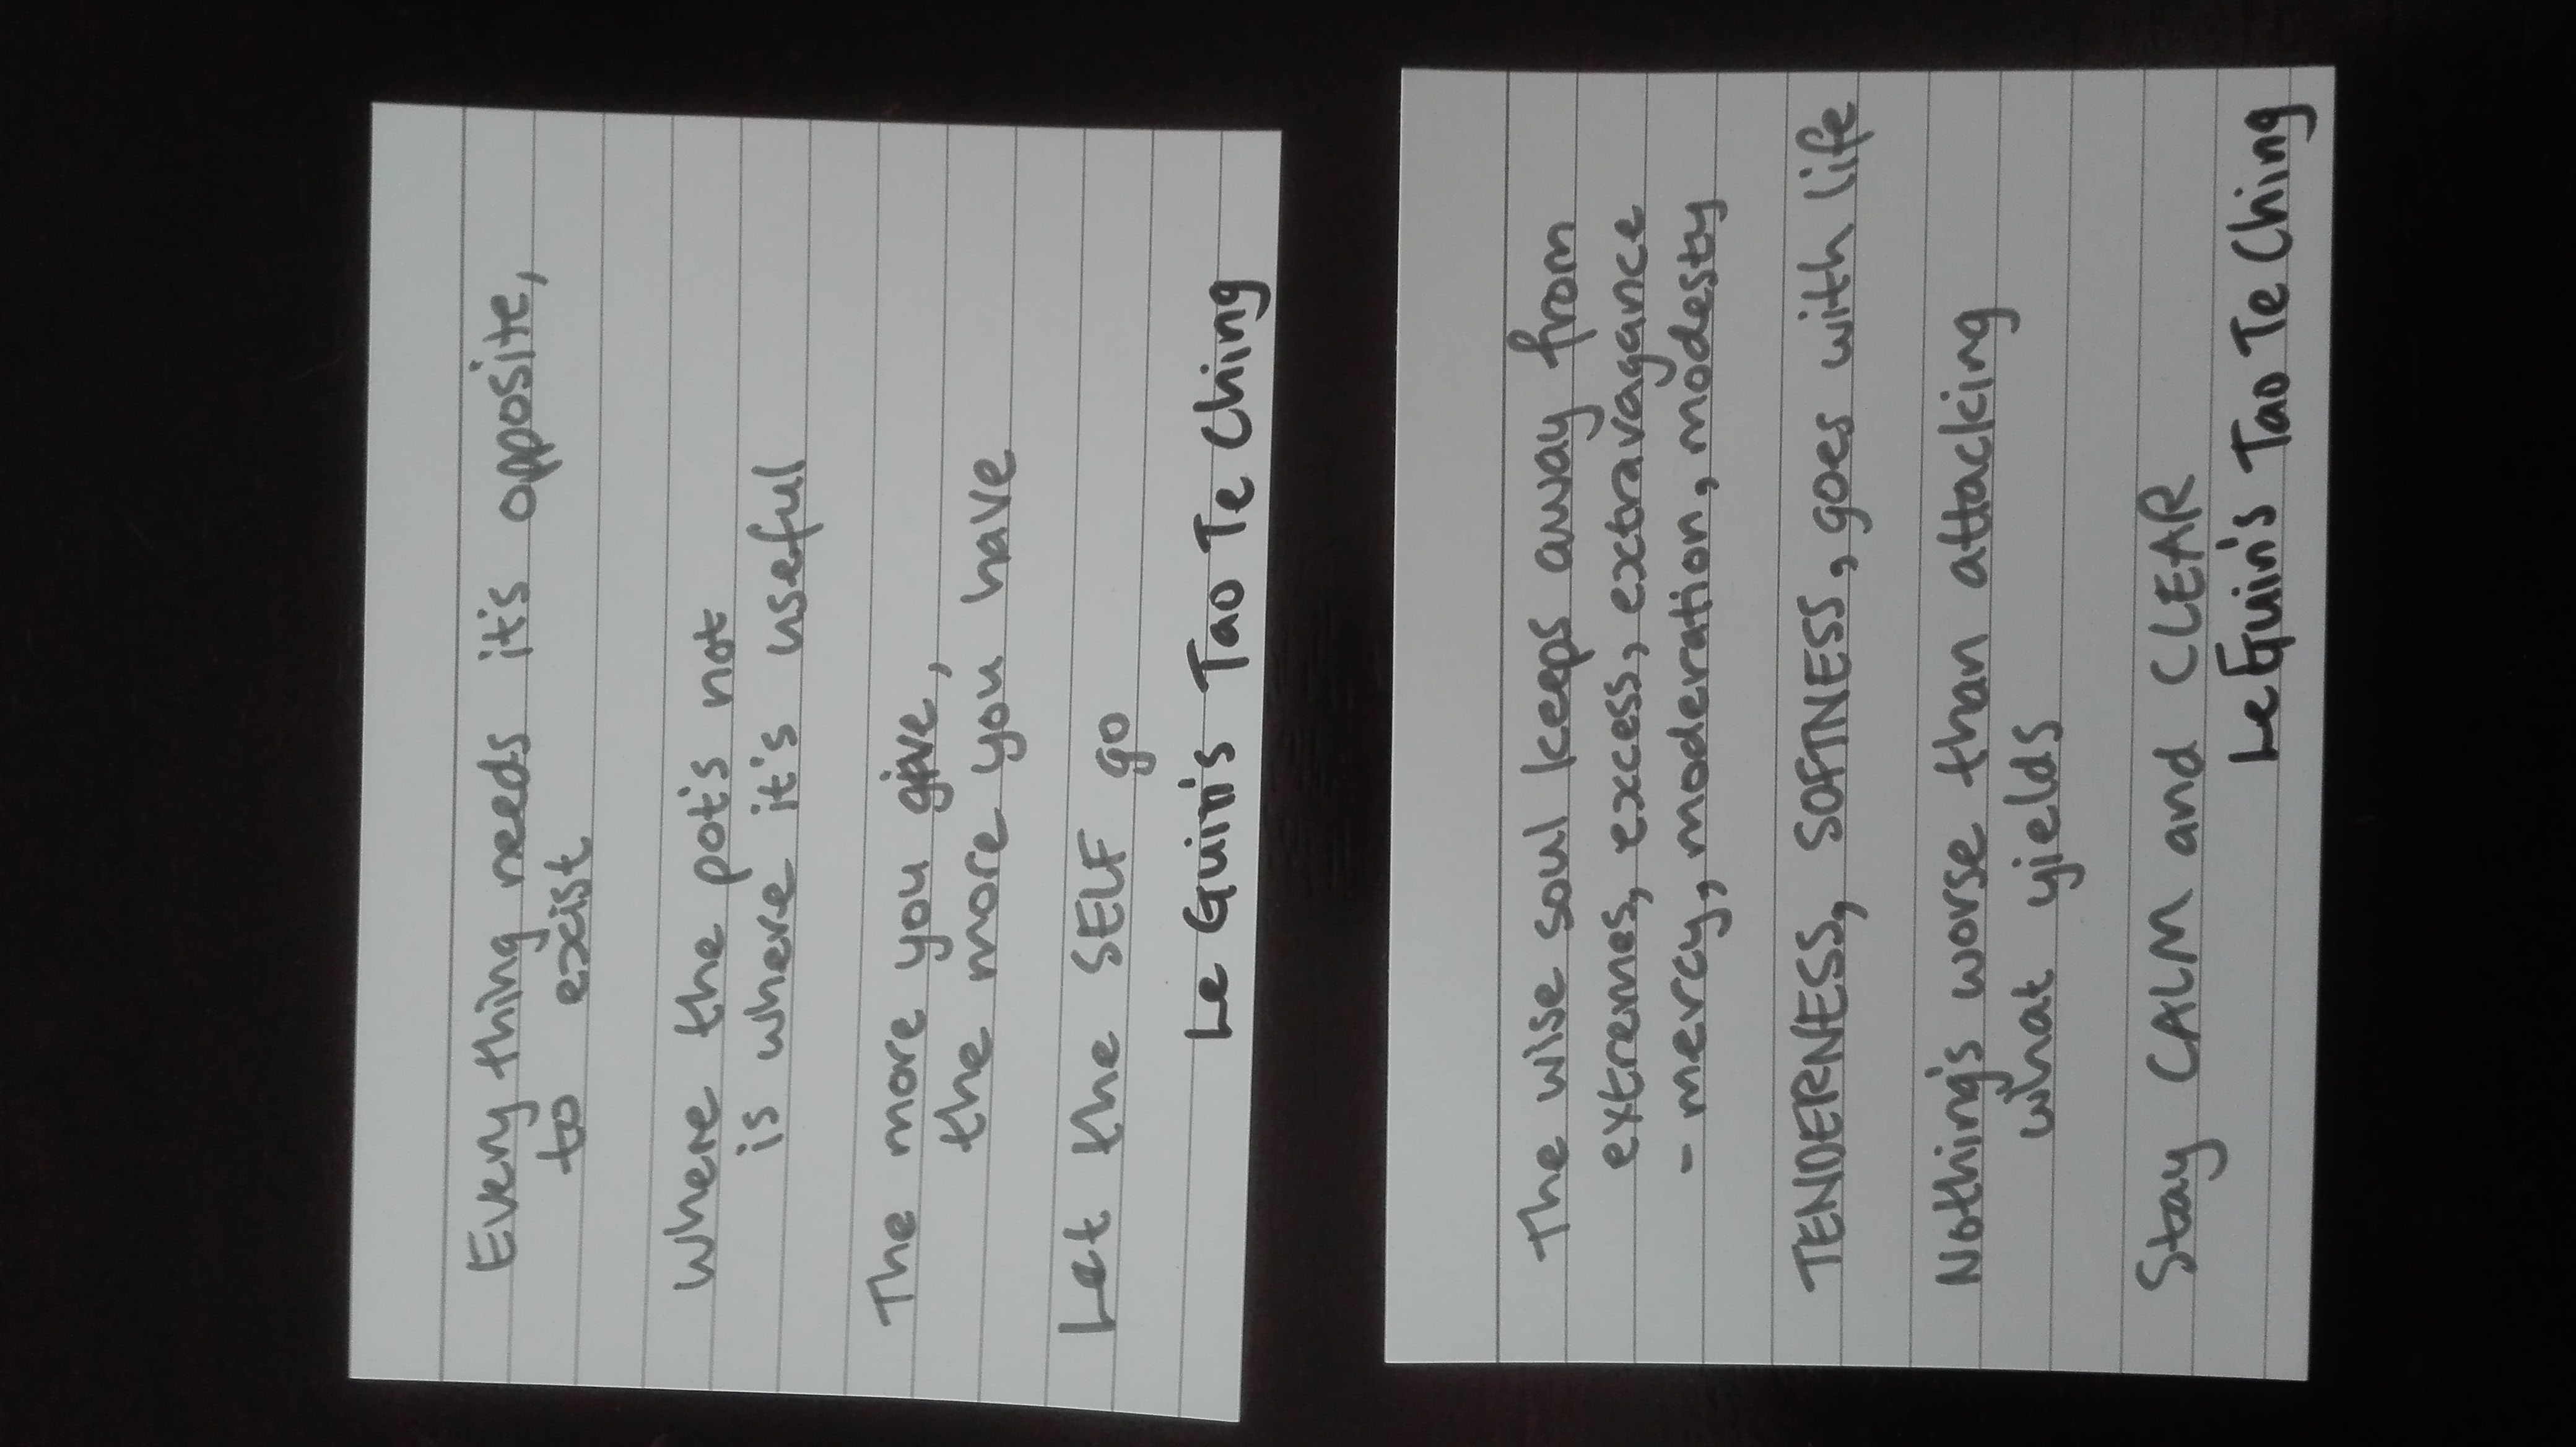 Every thing needs it's opposite,
to exist
Where the pot's not
is where it's useful
The more you give,
the more you have
Let the SELF go
Le Guin's Tao Te Ching
The wise soul keeps away from
extremes, excess, extravagance
- mercy, moderation, modesty
TENDERNESS, SOFTNESS, goes with life
Nothing's worse than attacking
what yields
Stay CALM and CLEAR
Le Guin's Tao Te Ching